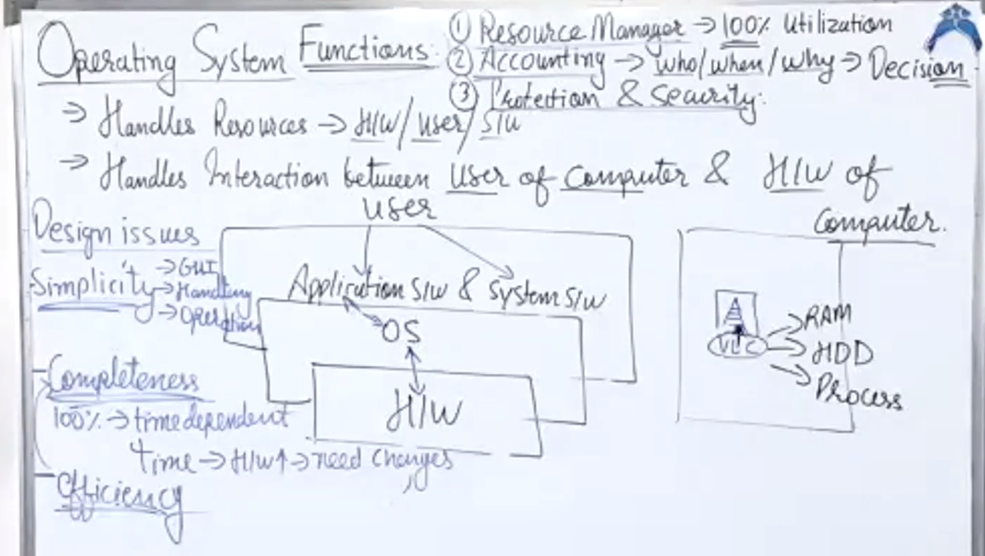 Operating System Functions:
① Resource Manager → 100% Utilization
② Accounting → who/when/why → Decision
③ Protection & Security.
→ Handles Resources → H/W/User/S/W
→ Handles Interaction between User of Computer & H/W of
Computer.
User
Design issues
Simplicity → GUI
→ Handling
→ Operation
Application S/W & System S/W
OS
H/W
Completeness
100% → time dependent
time → H/W↑ → need changes
Efficiency
VLC
→ RAM
→ HDD
→ Process